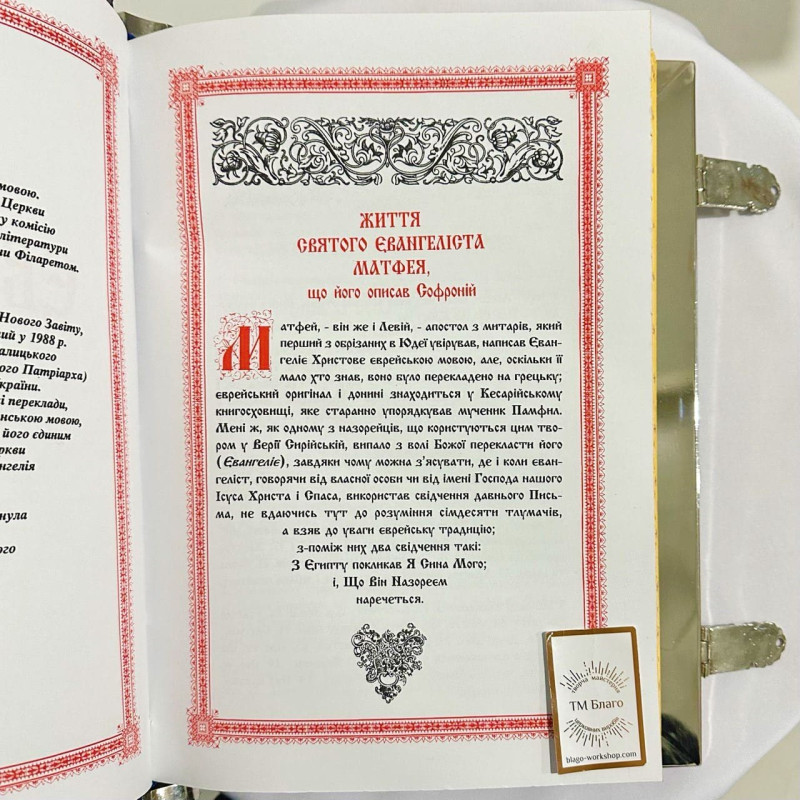 мовою.
Церкви
у комісію
літератури
ни Філаретом.
Нового Завіту,
ий у 1988 р.
алицького
ого Патріарха)
країни.
і переклади,
нською мовою,
його єдиним
ркви
нгелія
нула
ого
ЖИТТЯ
СВЯТОГО ЄВАНГЕЛІСТА
МАТФЕЯ,
що його описав Софроній
Матфей, - він же і Левій, - апостол з митарів, який
перший з обрізаних в Юдеї увірував, написав Єван-
геліє Христове єврейською мовою, але, оскільки її
мало хто знав, воно було перекладено на грецьку;
єврейський оригінал і донині знаходиться у Кесарійському
книгосховищі, яке старанно упорядкував мученик Памфил.
Мені ж, як одному з назорейців, що користуються цим тво-
ром у Верії Сирійській, випало з волі Божої перекласти його
(Євангеліє), завдяки чому можна з'ясувати, де і коли єван-
геліст, говорячи від власної особи чи від імені Господа нашого
Ісуса Христа і Спаса, використав свідчення давнього Пись-
ма, не вдаючись тут до розуміння сімдесяти тлумачів,
а взяв до уваги єврейську традицію;
з-поміж них два свідчення такі:
З Єгипту покликав Я Сина Мого;
і, Що Він Назореєм
наречеться.
творча майстерня
ТМ Благо
церковних виробів
blago-workshop.com